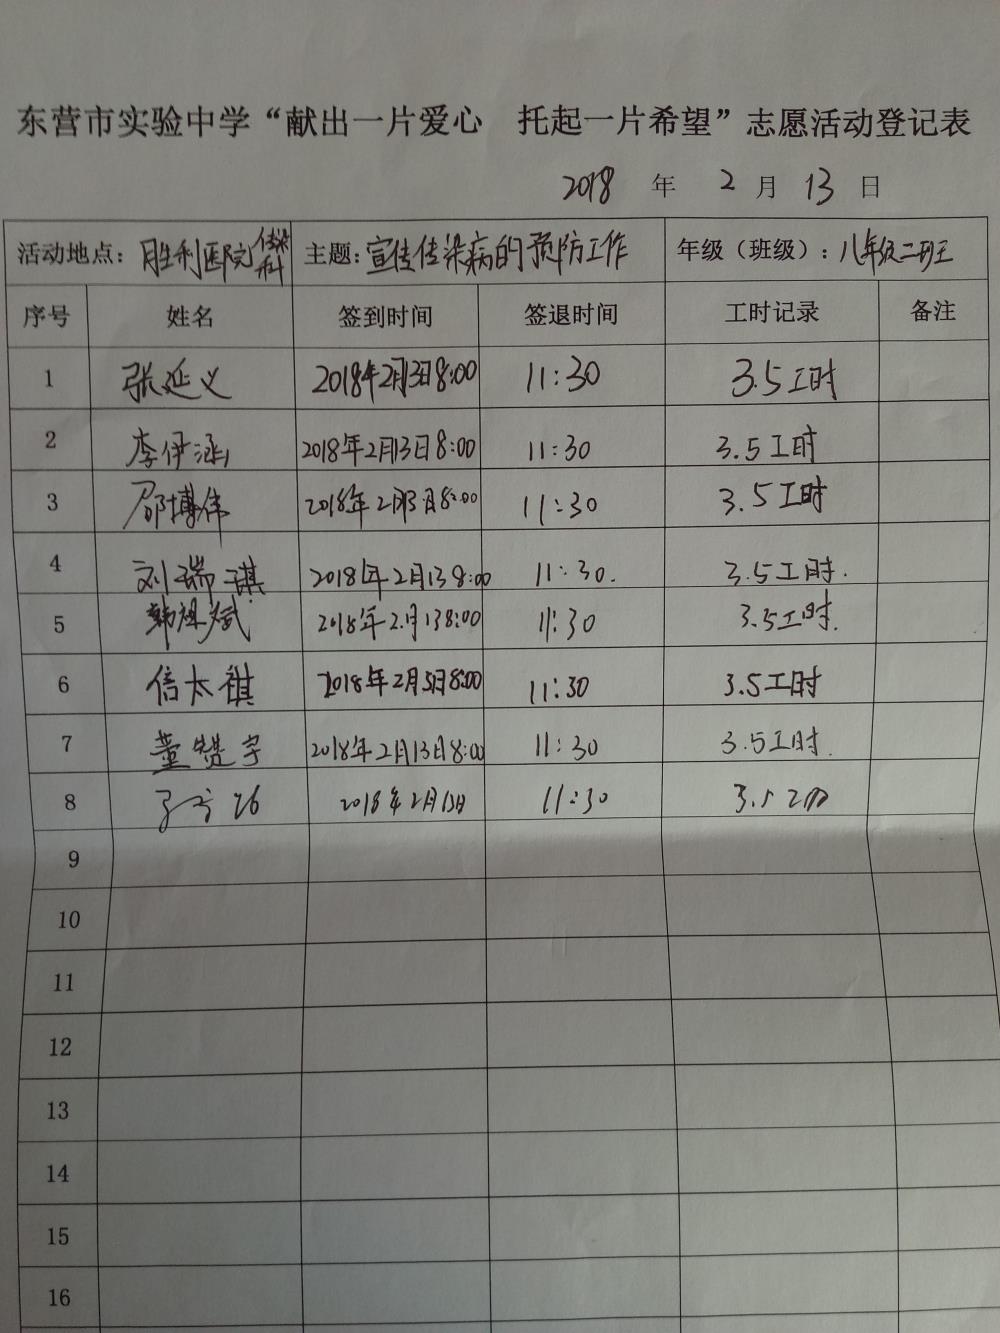 东营市实验中学“献出一片爱心 托起一片希望”志愿活动登记表
2018 年 2 月 13 日
活动地点：胜利医院传染科 主题：宣传传染病的预防工作 年级（班级）：八年级二班
序号 姓名 签到时间 签退时间 工时记录 备注
1 张延义 2018年2月13日8:00 11:30 3.5工时
2 李伊涵 2018年2月13日8:00 11:30 3.5工时
3 邵博伟 2018年2月13日8:00 11:30 3.5工时
4 刘瑞琪 2018年2月13 8:00 11:30. 3.5工时.
5 韩 斌 2018年2月13 8:00 11:30 3.5工时.
6 信太祺 2018年2月 日8:00 11:30 3.5工时
7 董赞宇 2018年2月13日8:00 11:30 3.5工时.
8 2018年2月13日 11:30 3.5
9
10
11
12
13
14
15
16